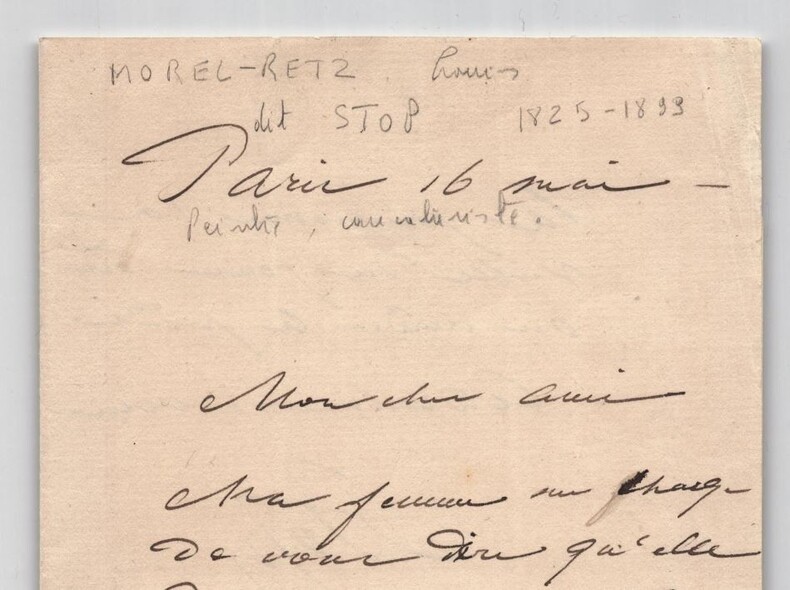 MOREL-RETZ Louis
dit STOP 1825-1899
Paris 16 mai -
Peintre, caricaturiste.
Mon cher ami
Ma femme me charge
De vous dire qu'elle